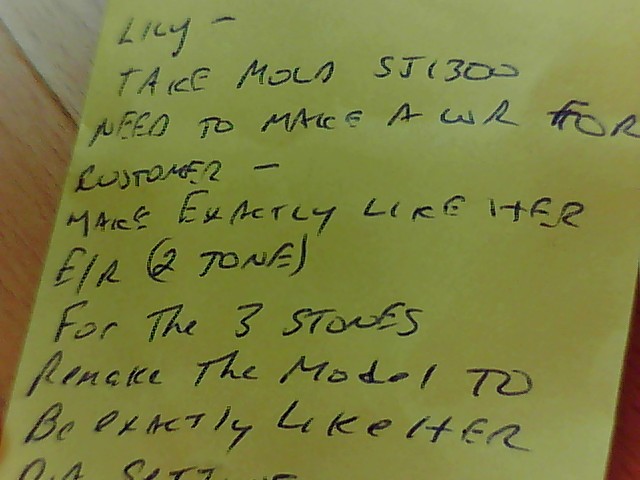 LILY -
TAKE MOLD SJ1300
NEED TO MAKE A WR FOR
CUSTOMER -
MAKE EXACTLY LIKE HER
E/R (2 TONE)
For The 3 STONES
Remake The Model TO
Be exACTly LIKe HER